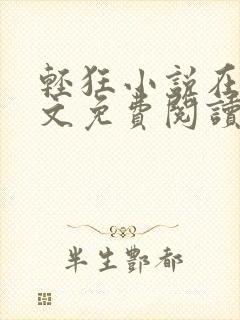 輕狂小說在
文免費閱讀
半生酆都